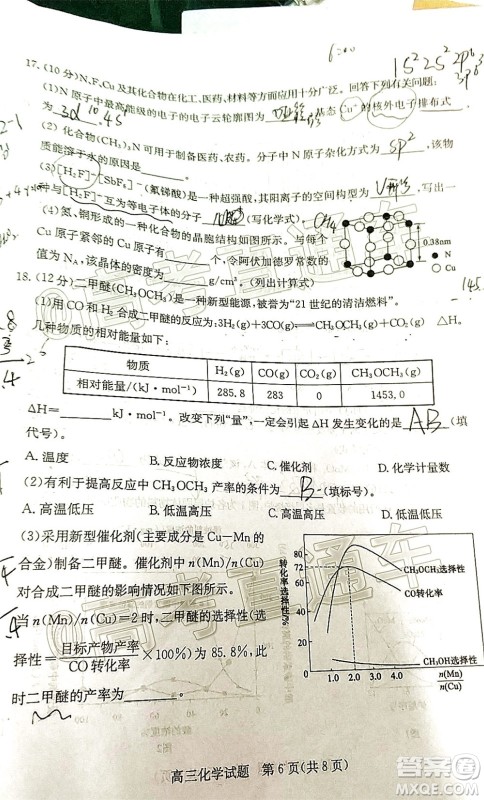 6=00
1S² 2S² 2P⁶
3P⁶
17.(10分)N、F、Cu及其化合物在化工、医药、材料等方面应用十分广泛。回答下列有关问题:
(1)N原子中最高能级的电子的电子云轮廓图为____,基态Cu⁺的核外电子排布式
为3d¹⁰4S。
(2)化合物(CH₃)₃N可用于制备医药、农药。分子中N原子杂化方式为 SP²,该物
质能溶于水的原因是____。
(3)[H₂F]⁺[SbF₆]⁻(氟锑酸)是一种超强酸,其阳离子的空间构型为V形,写出一
种与[H₂F]⁺互为等电子体的分子____(写化学式)。
(4)氮、铜形成的一种化合物的晶胞结构如图所示。与每个
Cu原子紧邻的Cu原子有____个,令阿伏加德罗常数的
值为N_A,该晶体的密度为____g/cm³。(列计算式)
0.38nm
N
Cu
18.(12分)二甲醚(CH₃OCH₃)是一种新型能源,被誉为“21世纪的清洁燃料”。
(1)用CO和H₂合成二甲醚的反应为:3H₂(g)+3CO(g)⟺CH₃OCH₃(g)+CO₂ ΔH。
几种物质的相对能量如下:
物质 H₂(g) CO(g) CO₂(g) CH₃OCH₃(g)
相对能量/(kJ·mol⁻¹) 285.8 283 0 1453.0
ΔH=____kJ·mol⁻¹。改变下列“量”,一定会引起ΔH发生变化的是 AB (填
代号)。
A.温度 B.反应物浓度 C.催化剂 D.化学计量数
(2)有利于提高反应中CH₃OCH₃产率的条件为 B (填标号)。
A.高温低压 B.低温高压 C.高温高压 D.低温低压
(3)采用新型催化剂(主要成分是Cu-Mn的
合金)制备二甲醚。催化剂中n(Mn)/n(Cu)
对合成二甲醚的影响情况如图所示。
当n(Mn)/n(Cu)=2时,二甲醚的选择性(选
择性=目标产物产率/CO转化率×100%)为85.8%,此
时二甲醚的产率为____。
转化率或选择性/%
90
72
70
50
30
10
1.0 2.0 3.0 4.0
n(Mn)
n(Cu)
CH₃OCH₃选择性
CO转化率
CH₃OH选择性
高三化学试题 第6页(共8页)
高考直通车
高考直通车
答案圈
MXQE.COM